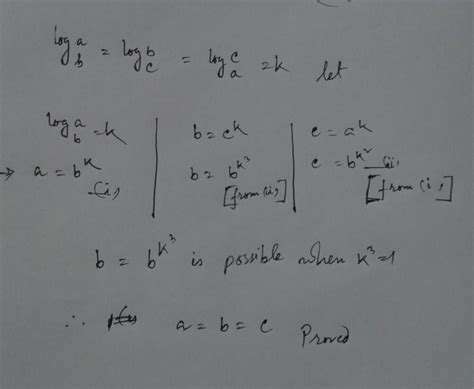 log_b a = log_c b = log_a c = k let
log_b a = k | b = c^k | c = a^k
→ a = b^k (i) | b = b^{k^3} [from (ii)] | c = b^{k^2} (ii) [from (i)]
b = b^{k^3} is possible when k^3 = 1
∴ a = b = c Proved